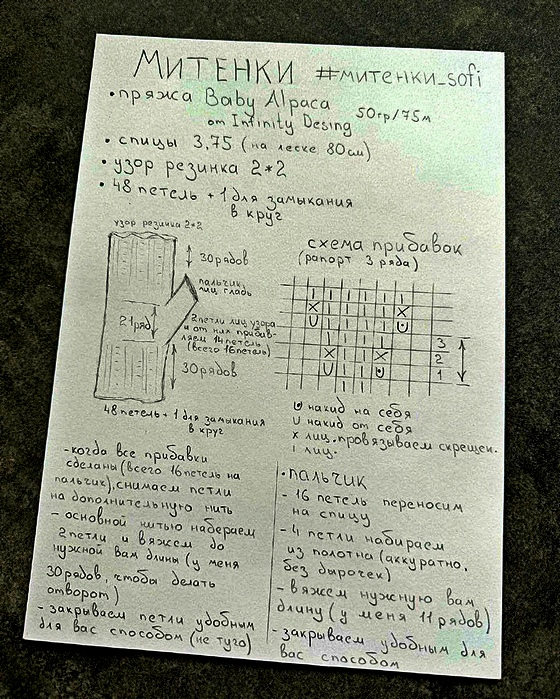 МИТЕНКИ #митенки_sofi
• пряжа Baby Alpaca
от Infinity Desing 50гр/75м
• спицы 3,75 (на леске 80см)
• узор резинка 2*2
• 48 петель + 1 для замыкания
в круг
узор резинка 2*2
30рядов
пальчик
лиц. гладь
21ряд
2петли лиц узора
и от них прибав-
ляем 14петель
(всего 16петель)
30рядов
48 петель + 1 для замыкания
в круг
схема прибавок
(рапорт 3 ряда)
3
2
1
накид на себя
U накид от себя
x лиц. провязываем скрещен.
ı лиц.
- когда все прибавки
сделаны (всего 16петель на
пальчик), снимаем петли
на дополнительную нить
- основной нитью набераем
2петли и вяжем до
нужной вам длины (у меня
30рядов, чтобы делать
отворот)
- закрываем петли удобным
для вас способом (не туго)
• пальчик
- 16 петель переносим
на спицу
- 4 петли набираем
из полотна (аккуратно,
без дырочек)
- вяжем нужную вам
длину (у меня 11 рядов)
- закрываем удобным для
вас способом